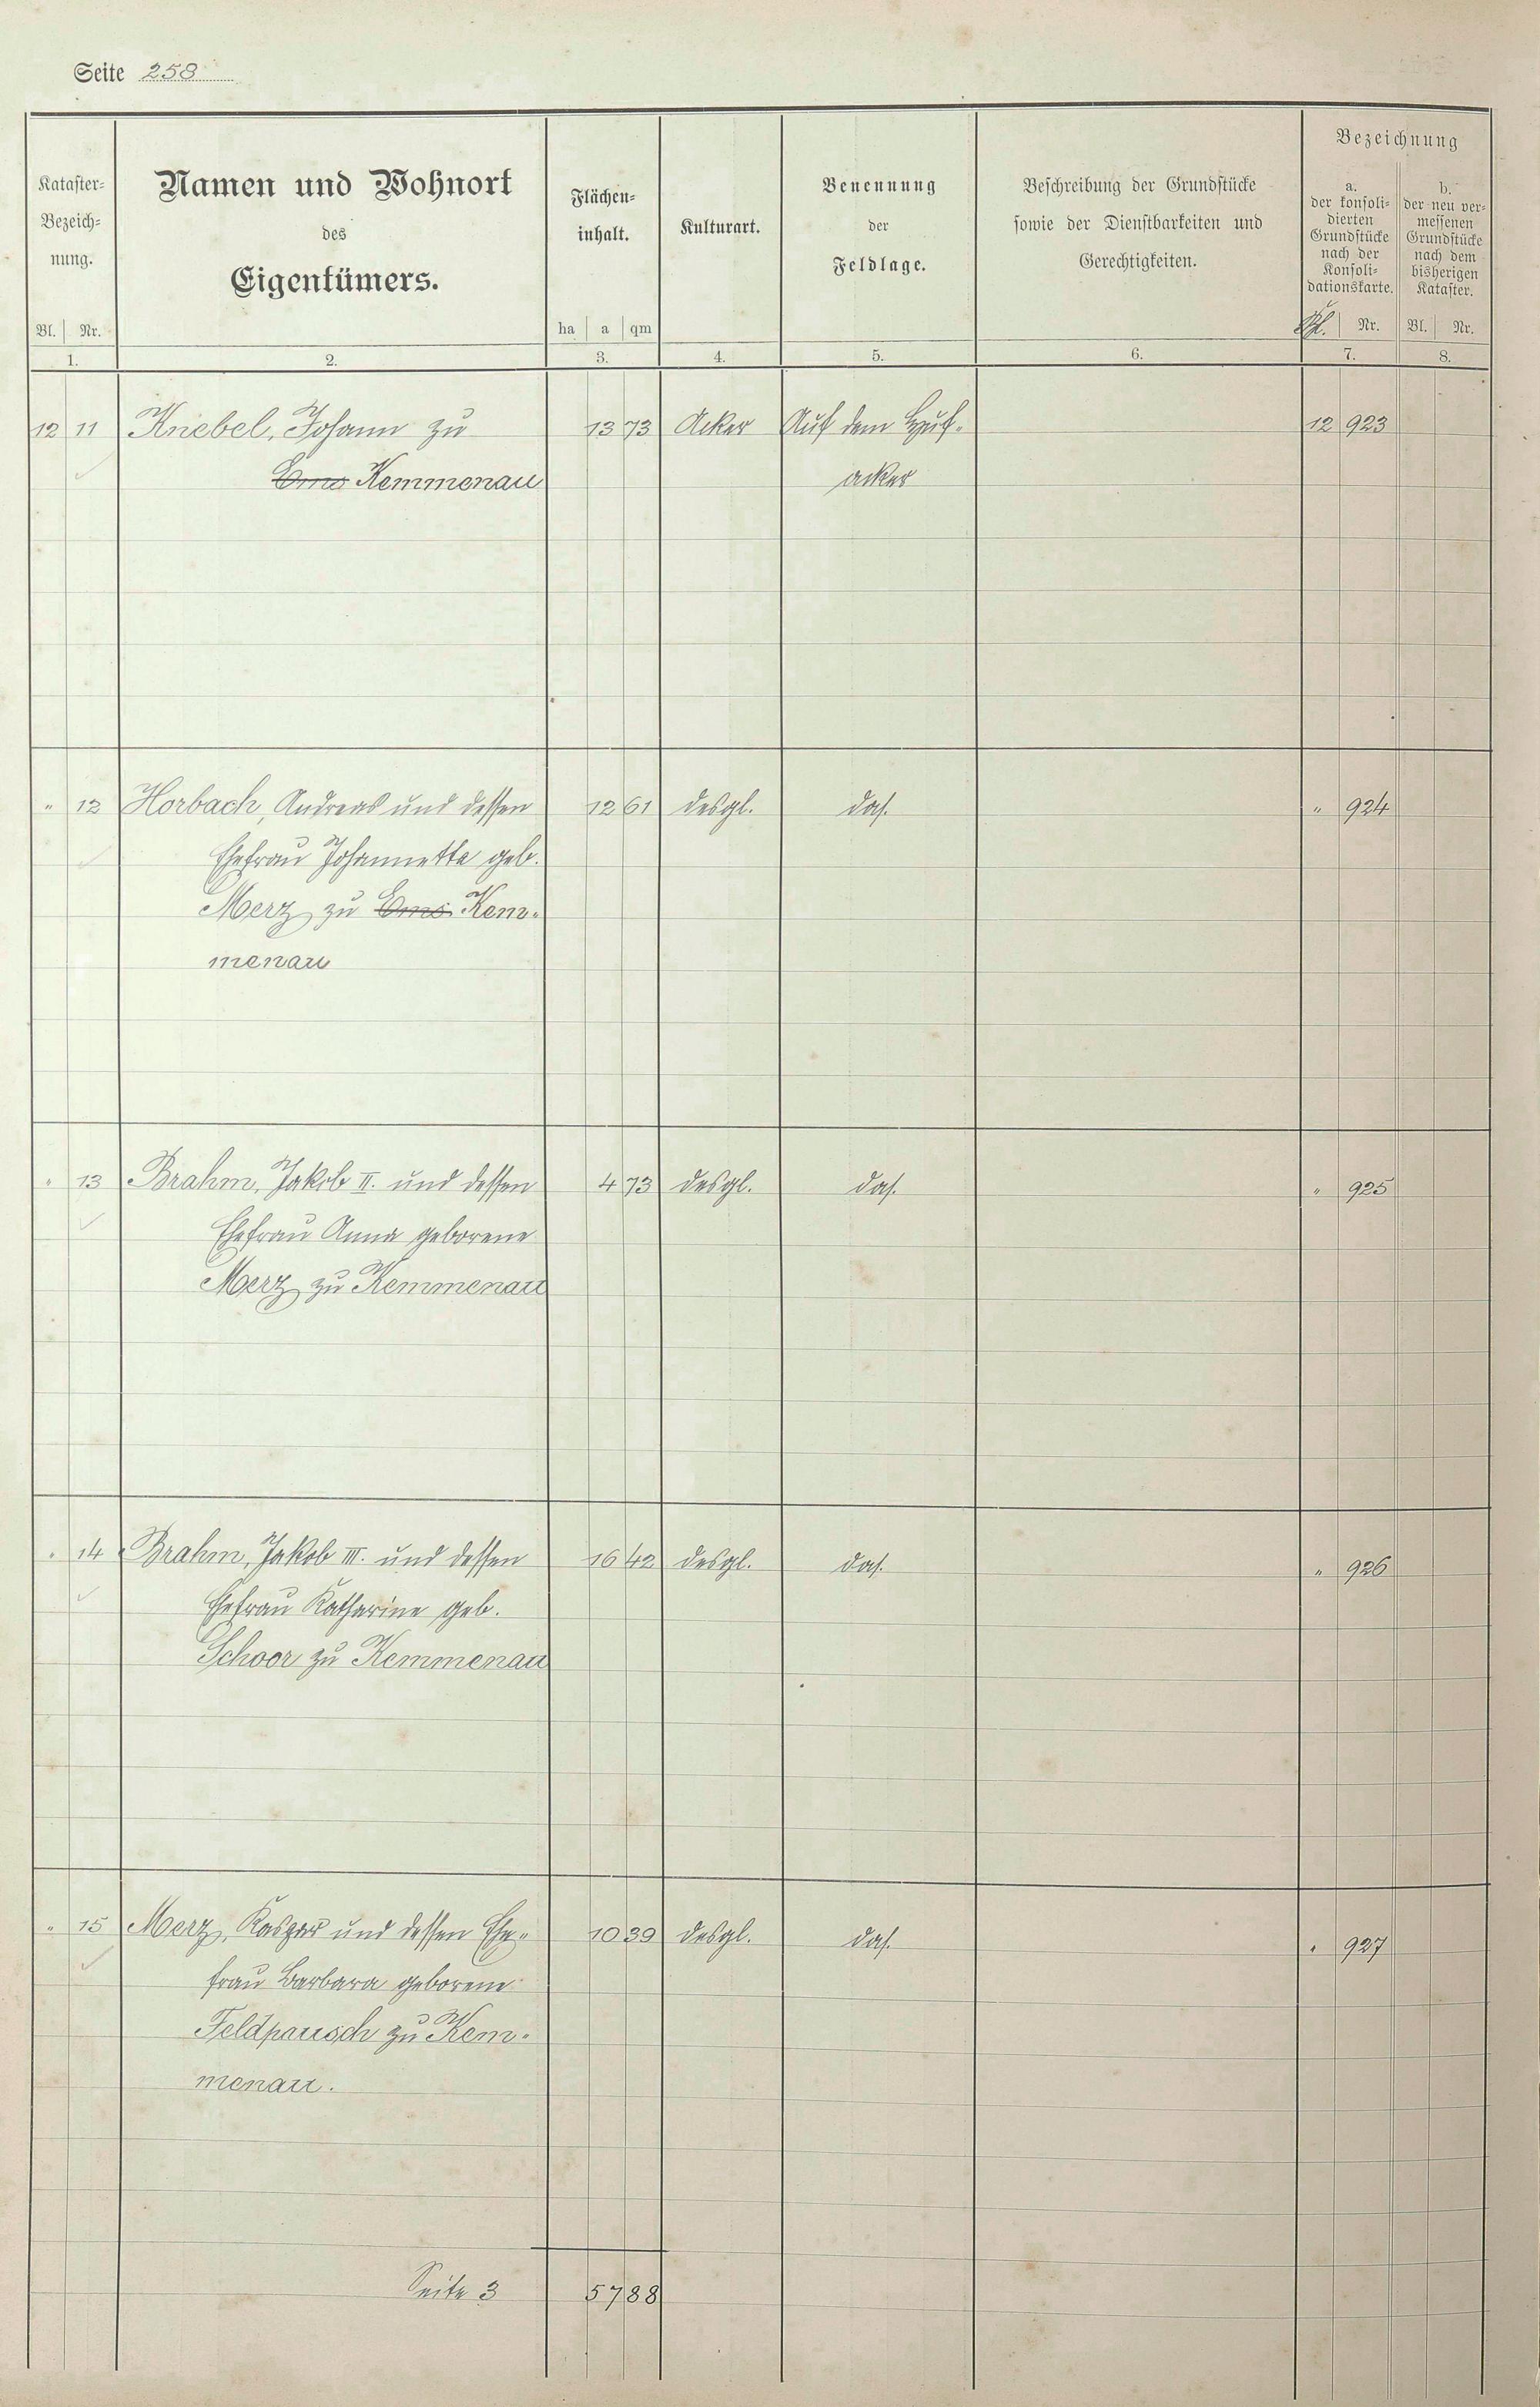 Seite 258
Kataster-
Bezeich-
nung.
Bl. Nr.
1.
Namen und Wohnort
des
Eigentümers.
2.
Flächen-
inhalt.
ha a qm
3.
Kulturart.
4.
Benennung
der
Feldlage.
5.
Beschreibung der Grundstücke
sowie der Dienstbarkeiten und
Gerechtigkeiten.
6.
Bezeichnung
a.
der konsoli-
dierten
Grundstücke
nach der
Konsoli-
dationskarte.
Nr.
7.
b.
der neu ver-
messenen
Grundstücke
nach dem
bisherigen
Kataster.
Bl. Nr.
8.
12 11 Knebel, Johann zu 13 73 Acker Auf dem 12 923
Ems Kemmenau acker
" 12 Horbach, Andreas und dessen 12 61 desgl. das. " 924
Ehefrau Johannette geb.
Merz zu Ems Kem-
menau
" 13 Brahm, Jakob II. und dessen 4 73 desgl. das. " 925
Ehefrau Anna geborene
Merz zu Kemmenau
" 14 Brahm, Jakob III. und dessen 16 42 desgl. das. " 926
Ehefrau Katharine geb.
Schoor zu Kemmenau
" 15 Merz, Kaspar und dessen Ehe- 10 39 desgl. das. " 927
frau Barbara geborene
Feldpausch zu Kem-
menau.
Seite 3 57 88